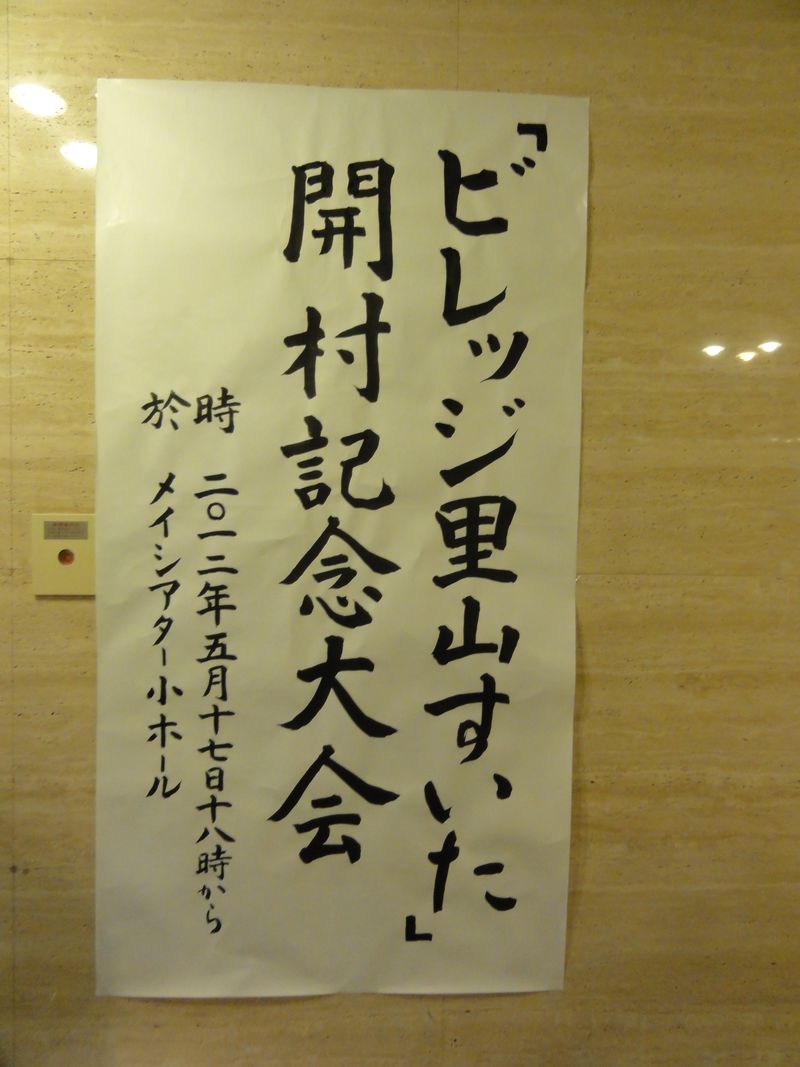 「ビレッジ里山すいた」
開村記念大会
時 二〇一二年五月十七日十八時から
於 メイシアター小ホール